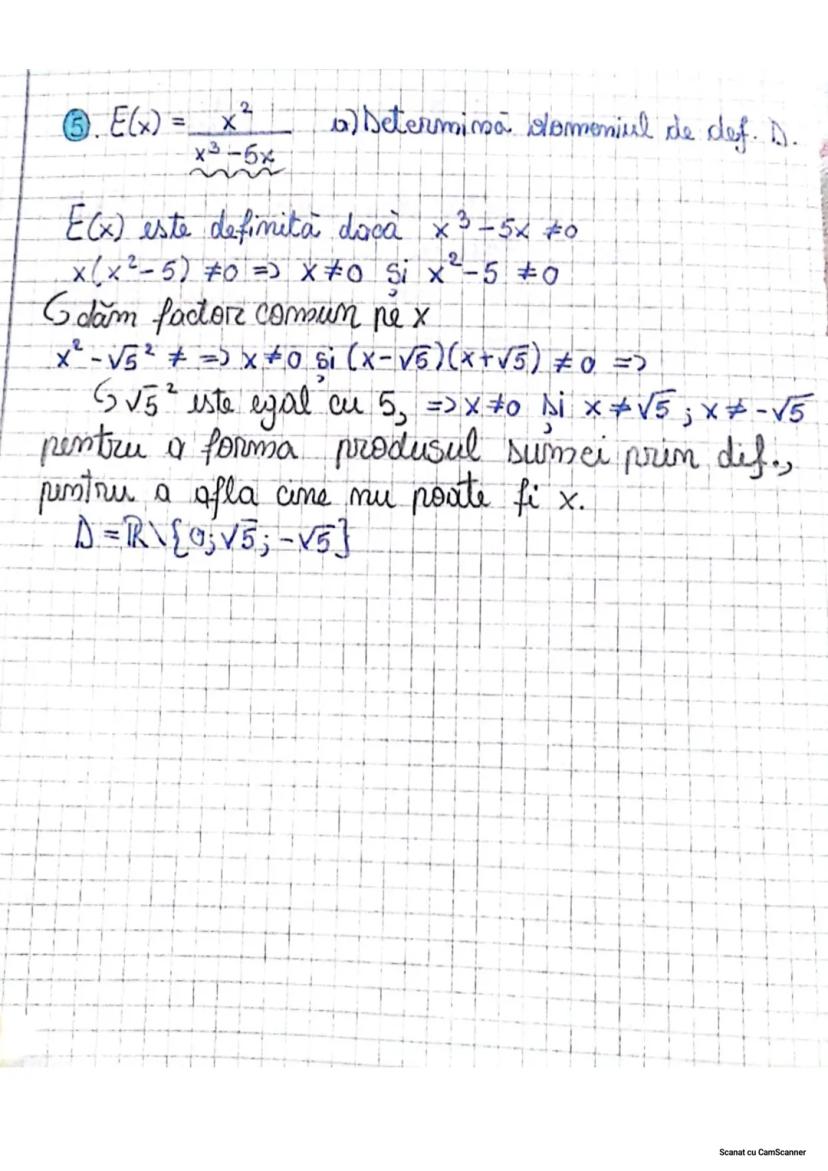 5. E(x) = x²/(x³-5x) a) Determină domeniul de def. D.
E(x) este definită dacă x³-5x ≠0
x(x²-5) ≠0 => x≠0 și x²-5 ≠0
↳ dăm factor comun pe x
x²-√5² ≠ => x≠0 și (x-√5)(x+√5) ≠0 =>
↳ √5² este egal cu 5, => x≠0 și x≠√5 ; x≠-√5
pentru a forma produsul sumei prin def.,
pentru a afla cine nu poate fi x.
D = ℝ\{0;√5;-√5}
Scanat cu CamScanner